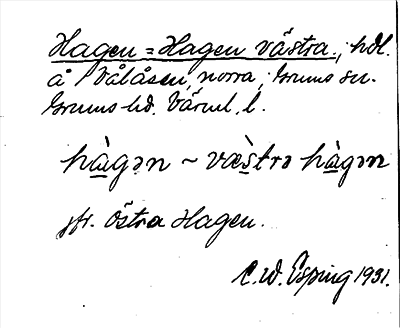 Hagen = Hagen västra, hdl.
å Vålåsen, norra, Grums sn.
Grums hd. Värml. l.
hàgən ~ væ̀strə hàgən
jfr. östra Hagen.
C.W. Esping 1931.